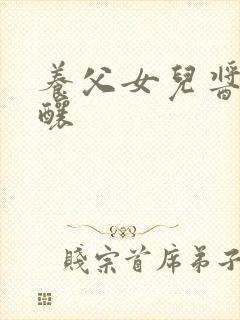 養父女兒醬
釀
賤宗首席弟子